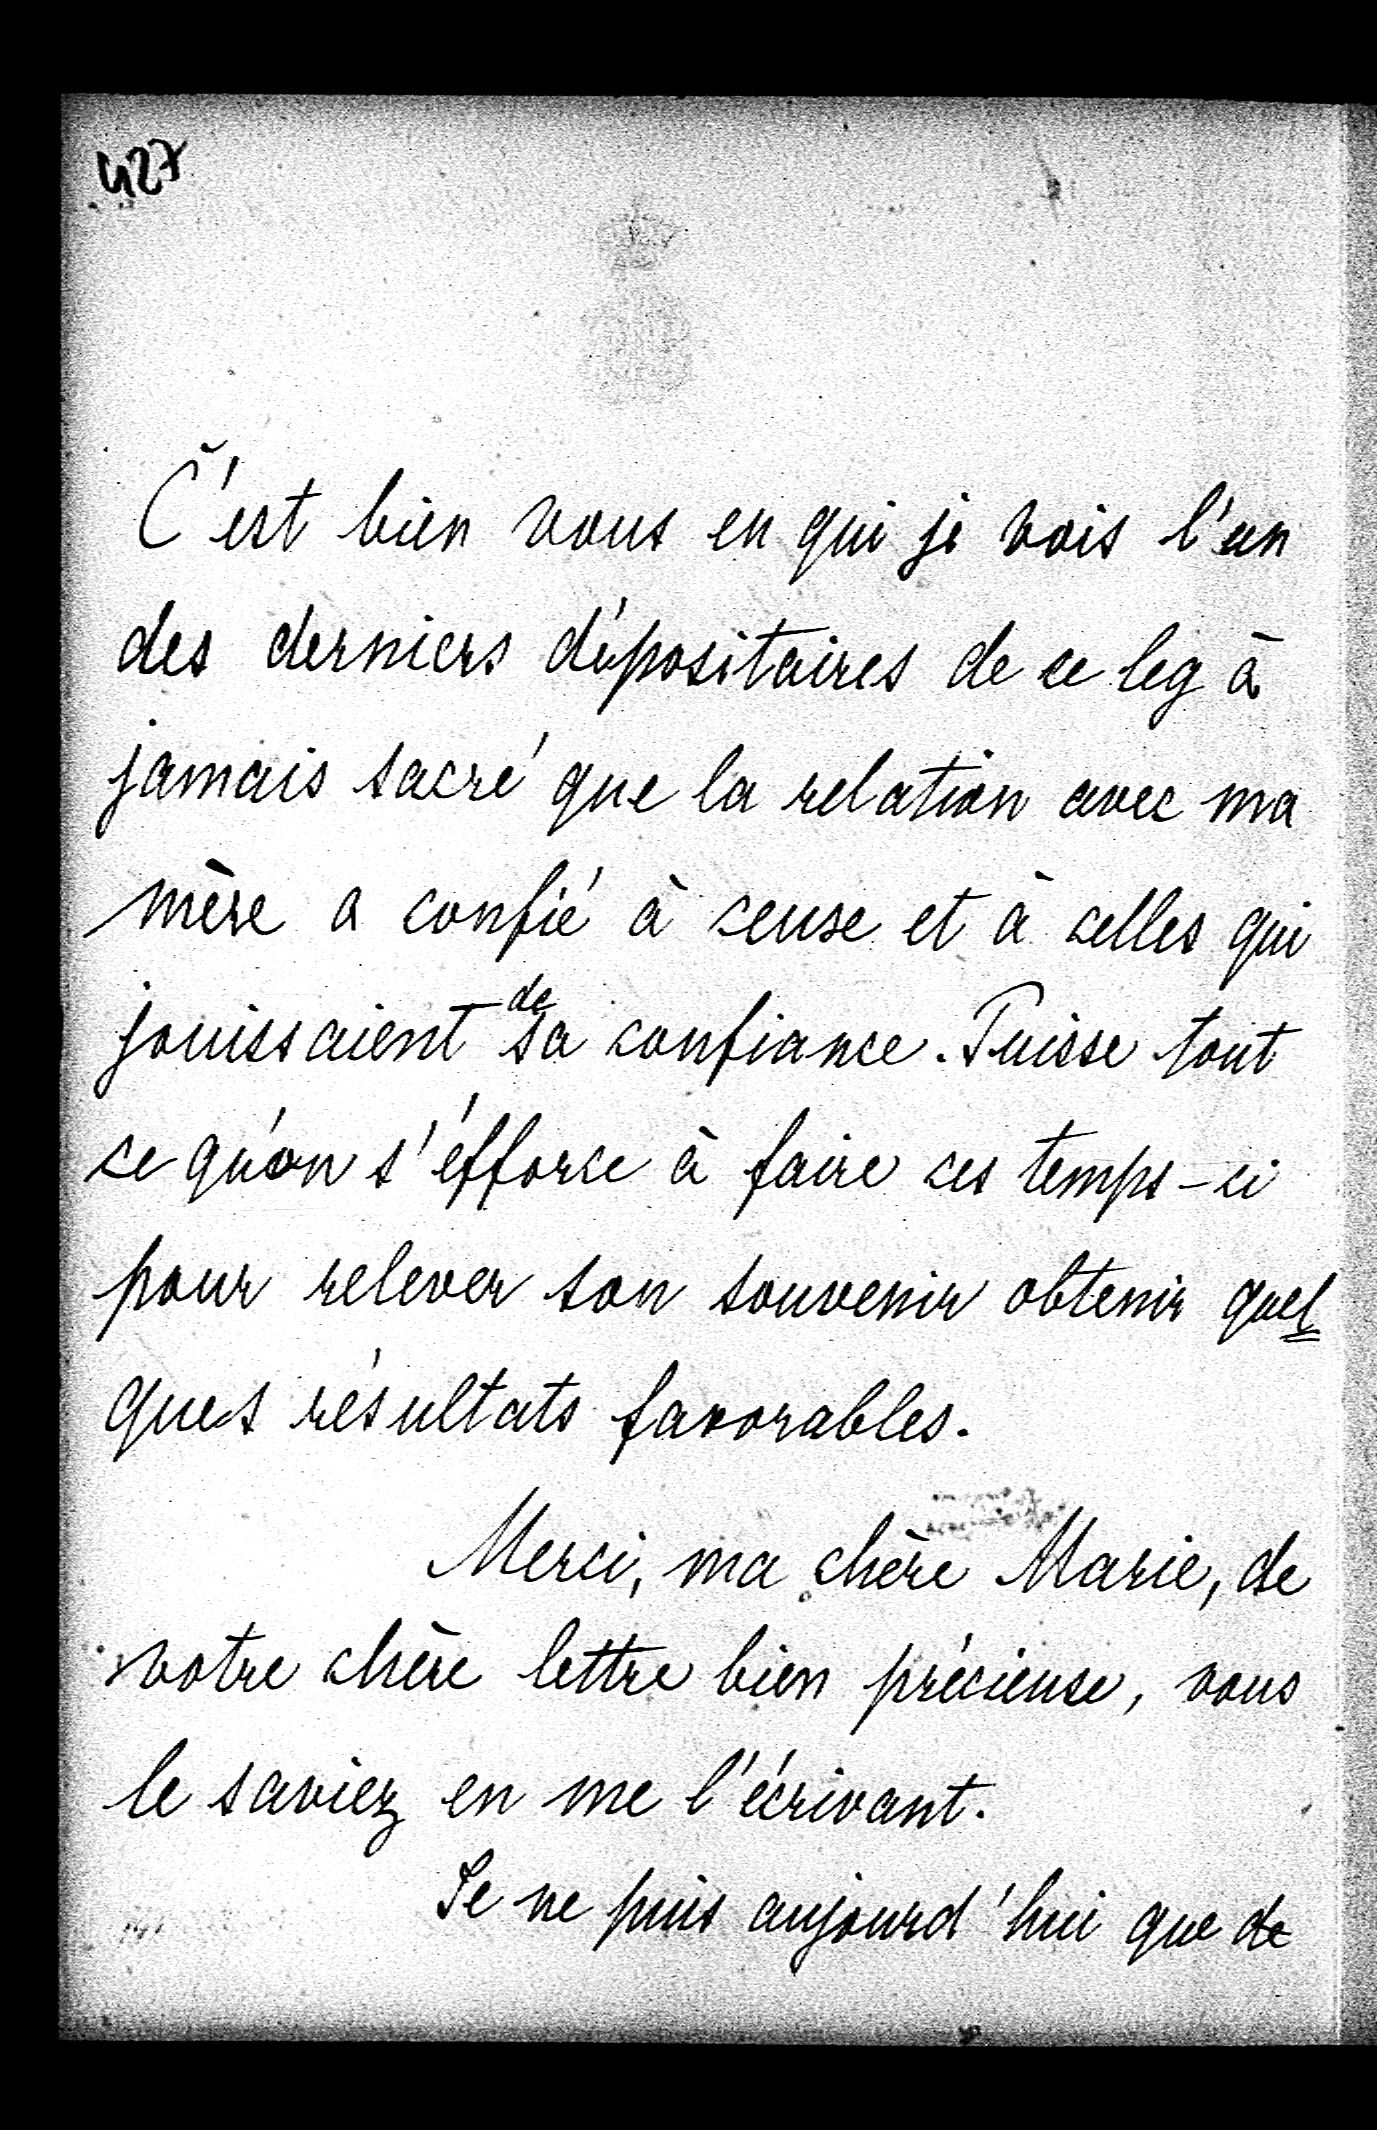 427
C'est bien vous en qui je vois l'un
des derniers dépositaires de ce leg à
jamais sacré que la relation avec ma
mère a confié à ceux et à celles qui
jouissaient de sa confiance. Puisse tout
ce qu'on s'éfforce à faire ces temps-ci
pour relever son souvenir obtenir quel
ques résultats favorables.
Merci, ma chère Marie, de
votre chère lettre bien précieuse, vous
le saviez en me l'écrivant.
Je ne puis aujourd'hui que de